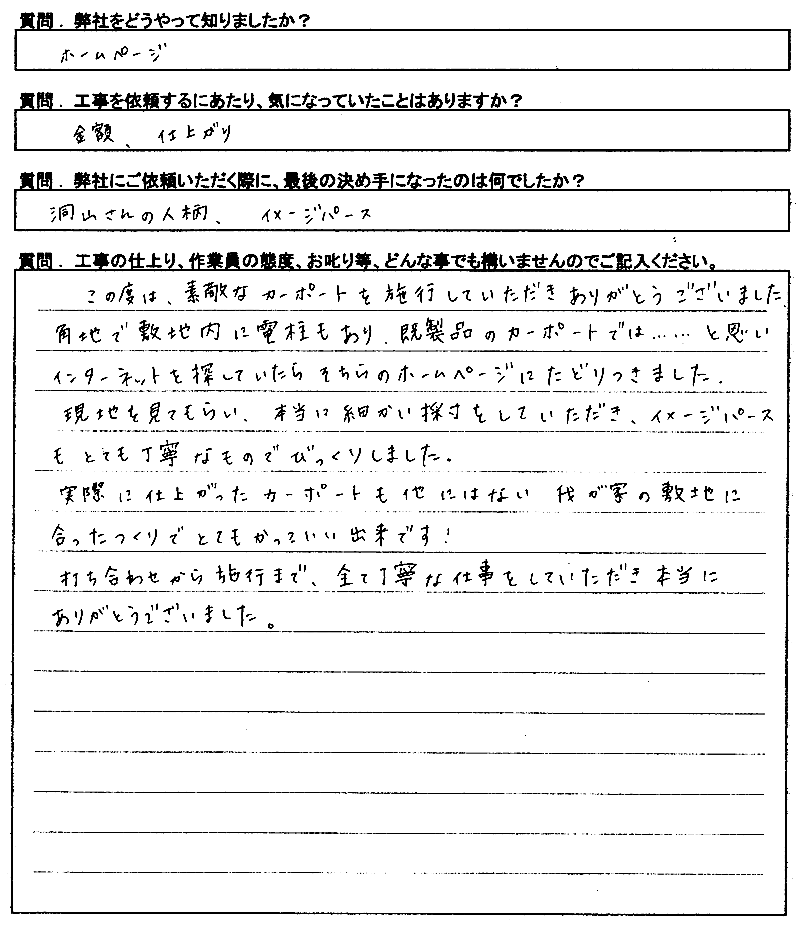 質問．弊社をどうやって知りましたか？
ホームページ
質問．工事を依頼するにあたり、気になっていたことはありますか？
金額、仕上がり
質問．弊社にご依頼いただく際に、最後の決め手になったのは何でしたか？
洞山さんの人柄、イメージパース
質問．工事の仕上り、作業員の態度、お叱り等、どんな事でも構いませんのでご記入ください。
この度は、素敵なカーポートを施行していただきありがとうございました
角地で敷地内に電柱もあり、既製品のカーポートでは……と思い
インターネットを探していたらそちらのホームページにたどりつきました。
現地を見てもらい、本当に細かい採寸をしていただき、イメージパース
もとても丁寧なものでびっくりしました。
実際に仕上がったカーポートも他にはない我が家の敷地に
合ったつくりでとてもかっていい出来です！
打ち合わせから施行まで、全て丁寧な仕事をしていただき本当に
ありがとうございました。